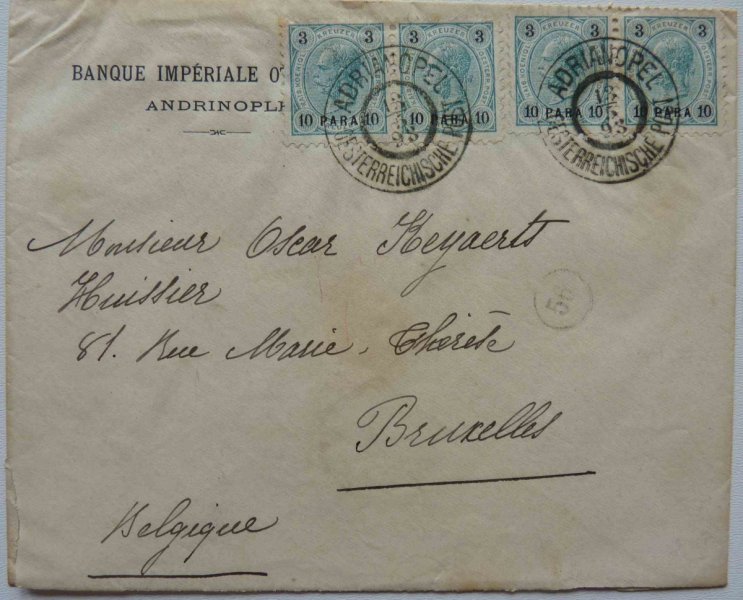 BANQUE IMPÉRIALE O
ANDRINOPLE
3 KREUZER 3
10 PARA 10
3 KREUZER 3
10 PARA 10
3 KREUZER 3
10 PARA 10
3 KREUZER 3
10 PARA 10
ADRIANOPEL
OESTERREICHISCHE
ADRIANOPEL
OESTERREICHISCHE
Monsieur Oscar Keyaerts
Huissier
81. Rue Marie-Thérèse
Bruxelles
Belgique